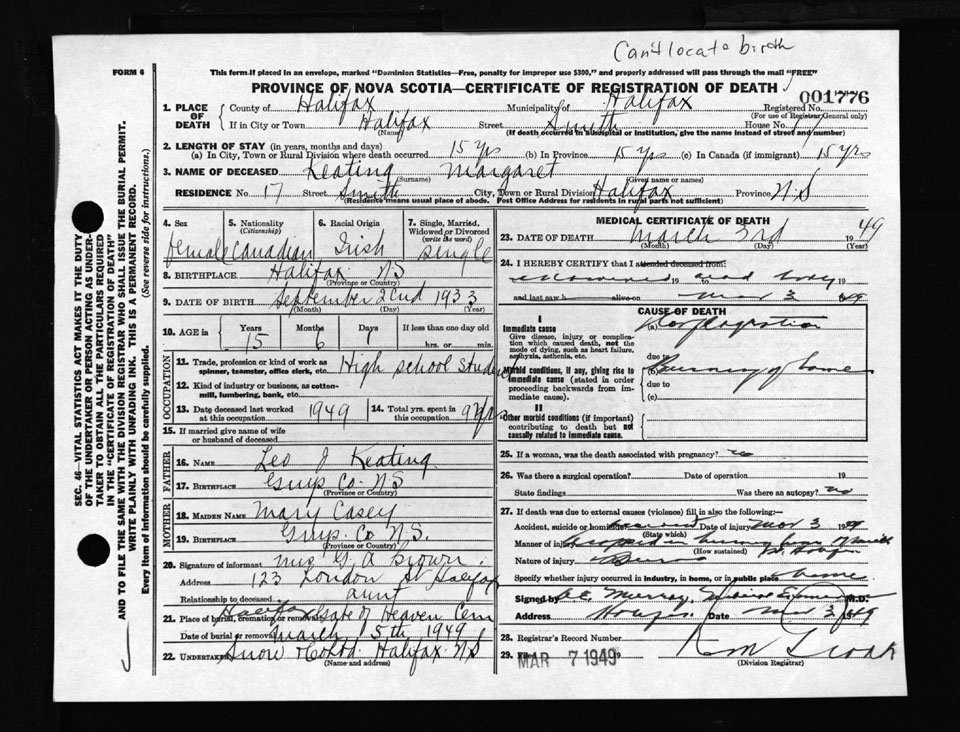 Can't locate birth
FORM 6
This form if placed in an envelope, marked "Dominion Statistics—Free, penalty for improper use $300," and properly addressed will pass through the mail "FREE"
PROVINCE OF NOVA SCOTIA—CERTIFICATE OF REGISTRATION OF DEATH
001776
1. PLACE OF DEATH
County of Halifax Municipality of Halifax Registered No.
(For use of Registrar General only)
If in City or Town Halifax Street Smith House No. 17
(Name) (If death occurred in a hospital or institution, give the name instead of street and number)
2. LENGTH OF STAY (in years, months and days)
(a) In City, Town or Rural Division where death occurred 15 yrs (b) In Province 15 yrs (c) In Canada (if immigrant) 15 yrs
3. NAME OF DECEASED Keating Margaret
(Surname) (Given name or names)
RESIDENCE No. 17 Street Smith City, Town or Rural Division Halifax Province N.S
(Residence means usual place of abode. Post Office Address for residents in rural parts not sufficient)
4. Sex 5. Nationality (Citizenship) 6. Racial Origin 7. Single, Married, Widowed or Divorced (write the word)
female Canadian Irish single
8. BIRTHPLACE Halifax NS
(Province or Country)
9. DATE OF BIRTH September 22nd 1933
(Month) (Day) (Year)
10. AGE in Years Months Days If less than one day old
15 6 hrs. or min.
OCCUPATION
11. Trade, profession or kind of work as spinner, teamster, office clerk, etc. High school student
12. Kind of industry or business, as cotton-mill, lumbering, bank, etc.
13. Date deceased last worked at this occupation 1949 14. Total yrs. spent in this occupation 9 yrs
15. If married give name of wife or husband of deceased
FATHER
16. NAME Leo J Keating
17. BIRTHPLACE Guys Co. NS
(Province or Country)
MOTHER
18. MAIDEN NAME Mary Casey
19. BIRTHPLACE Guys. Co N.S.
(Province or Country)
20. Signature of informant Mrs G. A Brown
Address 123 London St Halifax
Relationship to deceased aunt
21. Place of burial, cremation or removal Halifax Gate of Heaven Cem
Date of burial or removal March 5th 1949
22. Undertaker Snow & Co Ltd. Halifax NS
(Name and address)
MEDICAL CERTIFICATE OF DEATH
23. DATE OF DEATH March 3rd 1949
(Month) (Day) (Year)
24. I HEREBY CERTIFY that I attended deceased from:
19 to 19
and last saw h alive on Mar 3 49
CAUSE OF DEATH
I
Immediate cause (a)
Give disease, injury or complication which caused death, not the mode of dying, such as heart failure, asphyxia, asthenia, etc.
due to
Morbid conditions, if any, giving rise to immediate cause (stated in order proceeding backwards from immediate cause). (b) Burning of home
due to
(c)
II
Other morbid conditions (if important) contributing to death but not causally related to immediate cause.
25. If a woman, was the death associated with pregnancy? no
26. Was there a surgical operation? Date of operation 19
State findings Was there an autopsy? no
27. If death due to external causes (violence) fill in also the following:
Accident, suicide or homicide? Date of injury Mar 3 1949
(State which)
Manner of injury trapped in burning
(How sustained)
Nature of injury Burns
Specify whether injury occurred in industry, in home, or in public place home
Signed by Murray, Medical Examiner M.D.
Address Date Mar 3 1949
28. Registrar's Record Number
29. Filed MAR 7 1949 19
(Division Registrar)
SEC. 46—VITAL STATISTICS ACT MAKES IT THE DUTY OF THE UNDERTAKER OR PERSON ACTING AS UNDERTAKER TO OBTAIN ALL THE PARTICULARS REQUIRED IN THE "CERTIFICATE OF REGISTRATION OF DEATH"
AND TO FILE THE SAME WITH THE DIVISION REGISTRAR WHO SHALL ISSUE THE BURIAL PERMIT.
WRITE PLAINLY WITH UNFADING INK. THIS IS A PERMANENT RECORD.
Every item of information should be carefully supplied. (See reverse side for instructions.)